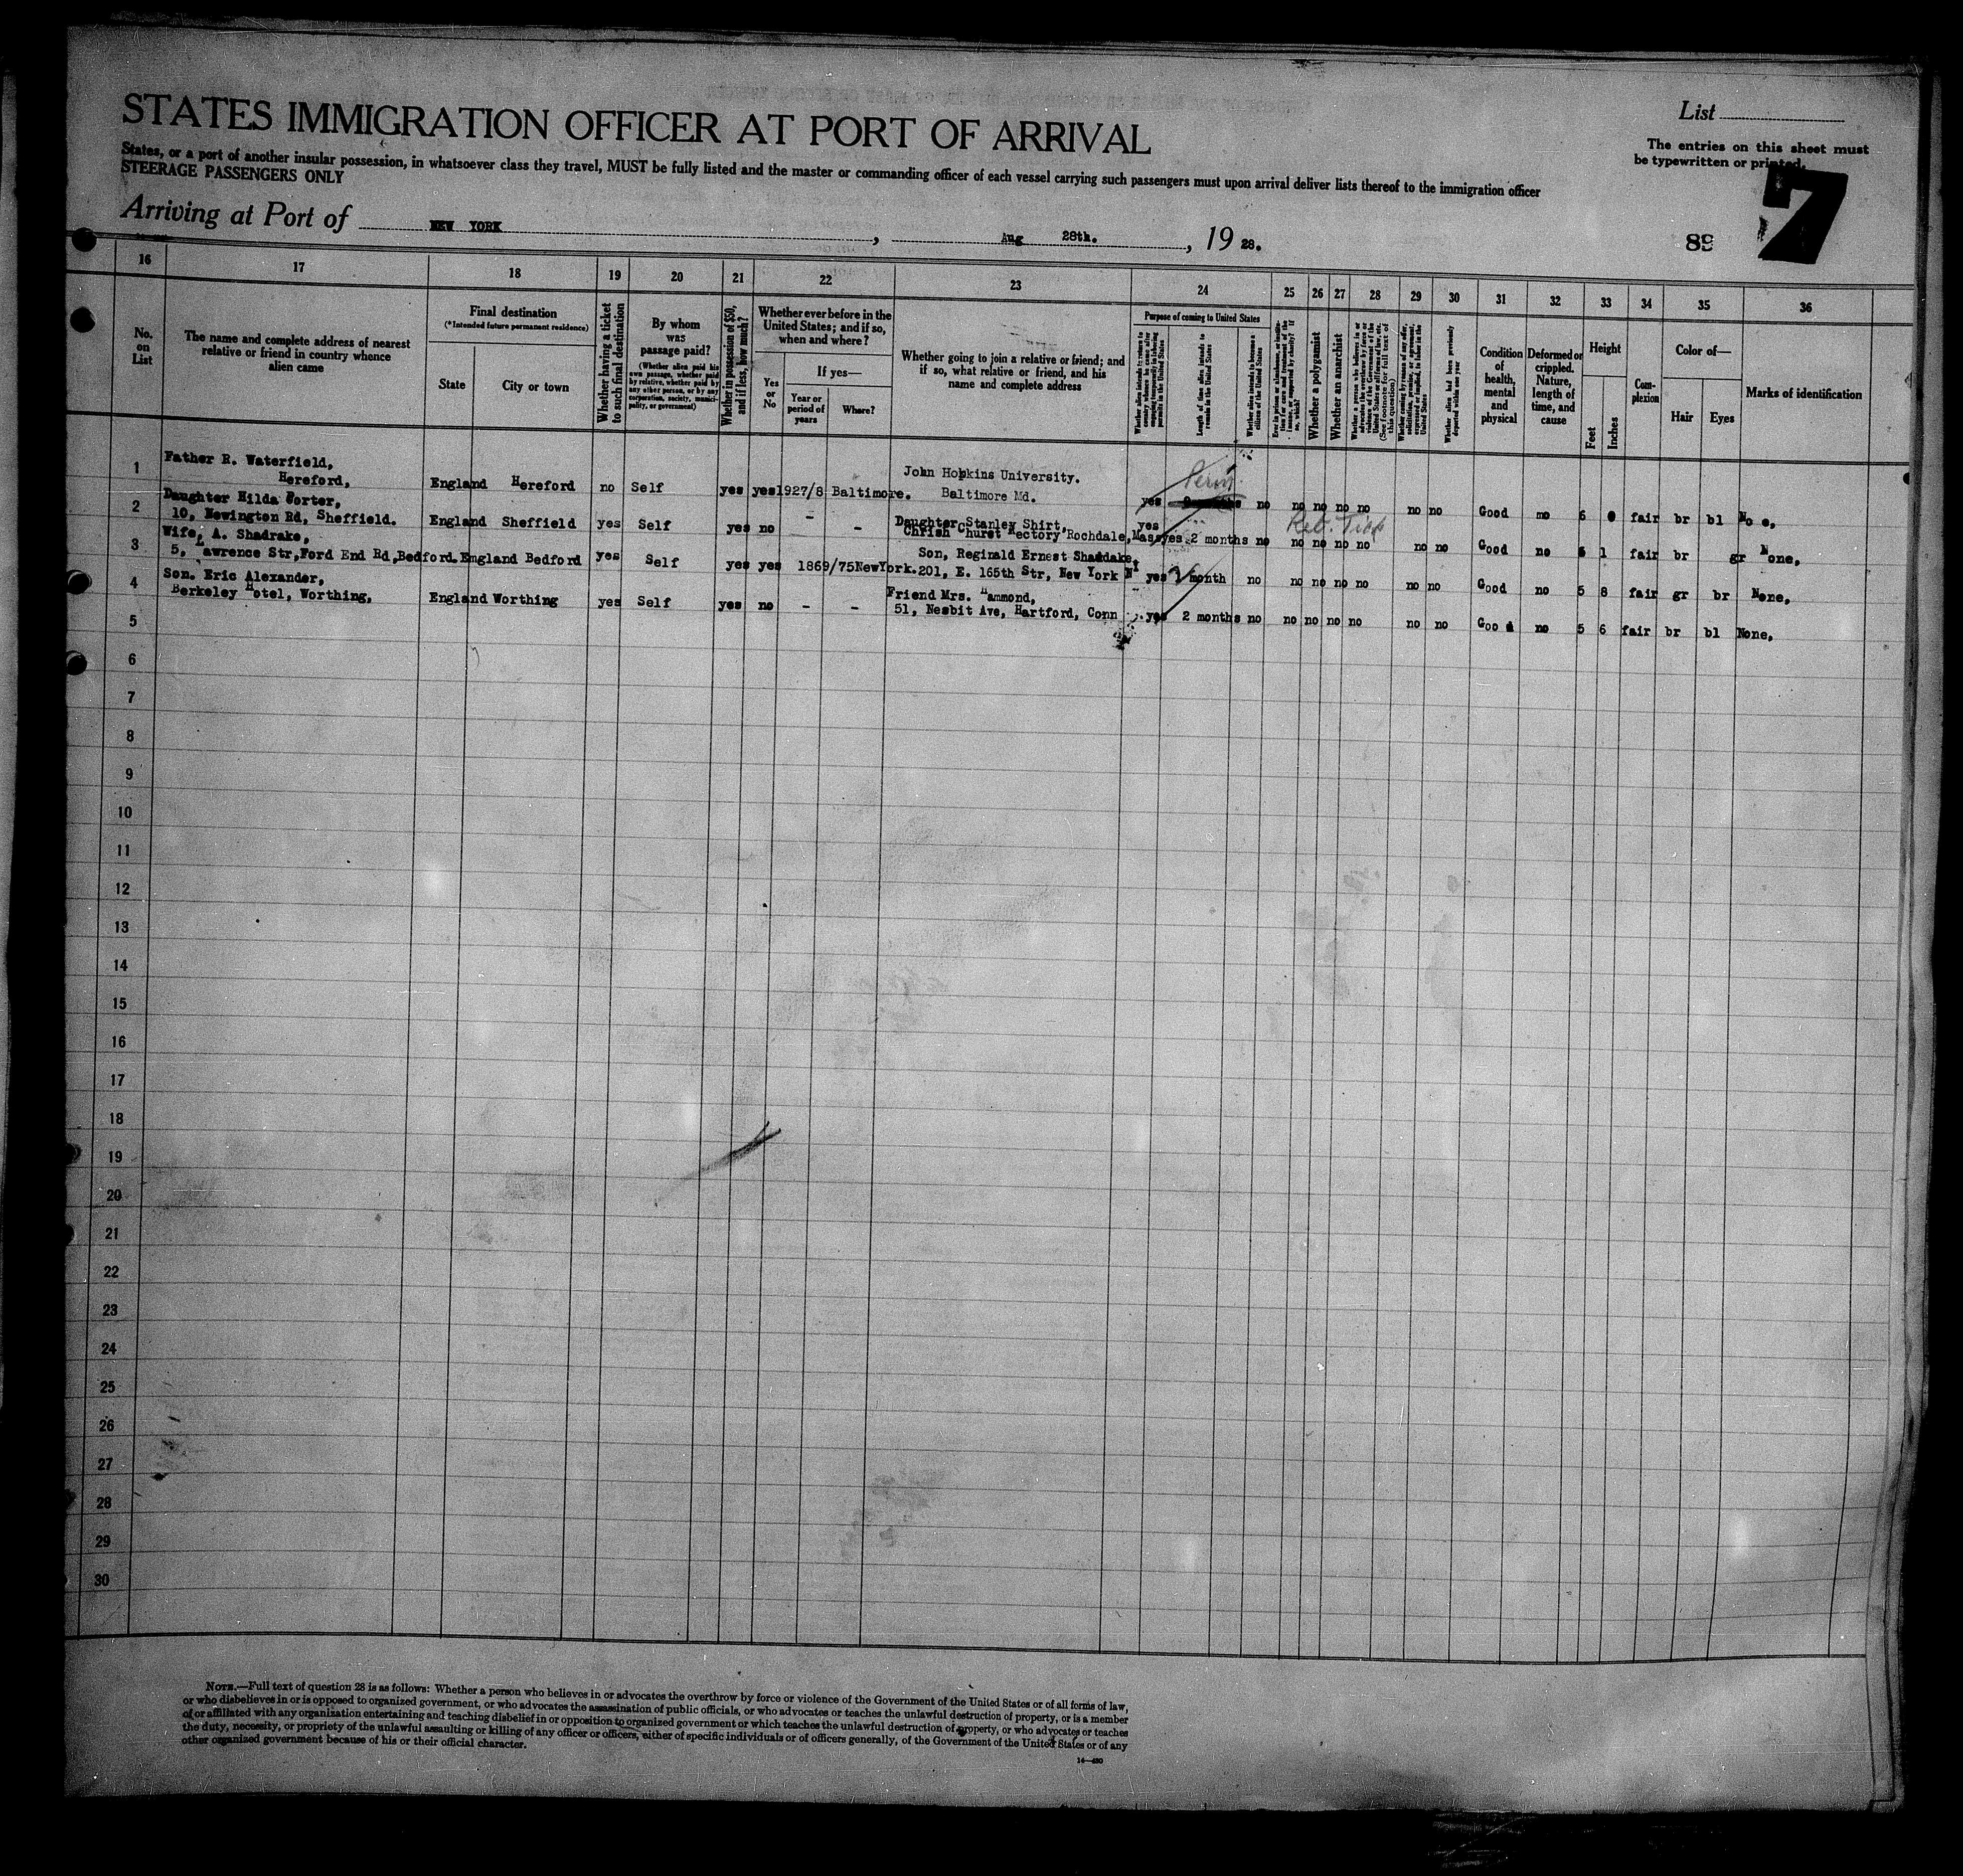 STATES IMMIGRATION OFFICER AT PORT OF ARRIVAL
List
The entries on this sheet must
be typewritten or printed.
States, or a port of another insular possession, in whatsoever class they travel, MUST be fully listed and the master or commanding officer of each vessel carrying such passengers must upon arrival deliver lists thereof to the immigration officer
STEERAGE PASSENGERS ONLY
Arriving at Port of NEW YORK, Aug 28th., 19 28.
89
7
16 17 18 19 20 21 22 23 24 25 26 27 28 29 30 31 32 33 34 35 36
No. on List
The name and complete address of nearest
relative or friend in country whence
alien came
Final destination
(*Intended future permanent residence)
State
City or town
Whether having a ticket
to such final destination
By whom
was
passage paid?
(Whether alien paid his
own passage, whether paid
by relative, whether paid by
any other person, or by any
corporation, society, munici-
pality, or government)
Whether in possession of $50,
and if less, how much?
Whether ever before in the
United States; and if so,
when and where?
Yes
or
No
If yes—
Year or
period of
years
Where?
Whether going to join a relative or friend; and
if so, what relative or friend, and his
name and complete address
Purpose of coming to United States
Length of time alien intends to
remain in the United States
Whether alien intends to become a
citizen of the United States
Whether a polygamist
Whether an anarchist
(See footnote for full text of
this question)
Whether alien had been previously
deported within one year
Condition
of
health,
mental
and
physical
Deformed or
crippled.
Nature,
length of
time, and
cause
Height
Feet
Inches
Com-
plexion
Color of—
Hair
Eyes
Marks of identification
1 Father R. Waterfield,
Hereford, England Hereford no Self yes yes 1927/8 Baltimore. John Hopkins University.
Baltimore Md. yes no no no no no no no Good no 6 fair br bl
2 Daughter Hilda
10, Newington Rd, Sheffield. England Sheffield yes Self yes no - - Daughter Stanley Shirt,
Rectory Rochdale, Mass yes 2 months no no no no no no no Good no 1 fair br gr None,
Ret. Tick
3 Wife, A. Shadrake,
5, Lawrence Str, Ford End Rd, Bedford. England Bedford yes Self yes yes 1869/75 NewYork. Son, Reginald Ernest Shadrake,
201, E. 165th Str, New York yes month no no no no no no no Good no 5 8 fair gr br None,
4 Son. Eric Alexander,
Berkeley Hotel, Worthing, England Worthing yes Self yes no - - Friend Mrs. Hammond,
51, Nesbit Ave, Hartford, Conn. yes 2 months no no no no no no no Good no 5 6 fair br bl None,
5
6
7
8
9
10
11
12
13
14
15
16
17
18
19
20
21
22
23
24
25
26
27
28
29
30
NOTE.—Full text of question 28 is as follows: Whether a person who believes in or advocates the overthrow by force or violence of the Government of the United States or of all forms of law,
or who disbelieves in or is opposed to organized government, or who advocates the assassination of public officials, or who advocates or teaches the unlawful destruction of property, or is a member
of or affiliated with any organization entertaining and teaching disbelief in or opposition to organized government or which teaches the unlawful destruction of property, or who advocates or teaches
the duty, necessity, or propriety of the unlawful assaulting or killing of any officer or officers, either of specific individuals or of officers generally, of the Government of the United States or of any
other organized government because of his or their official character.